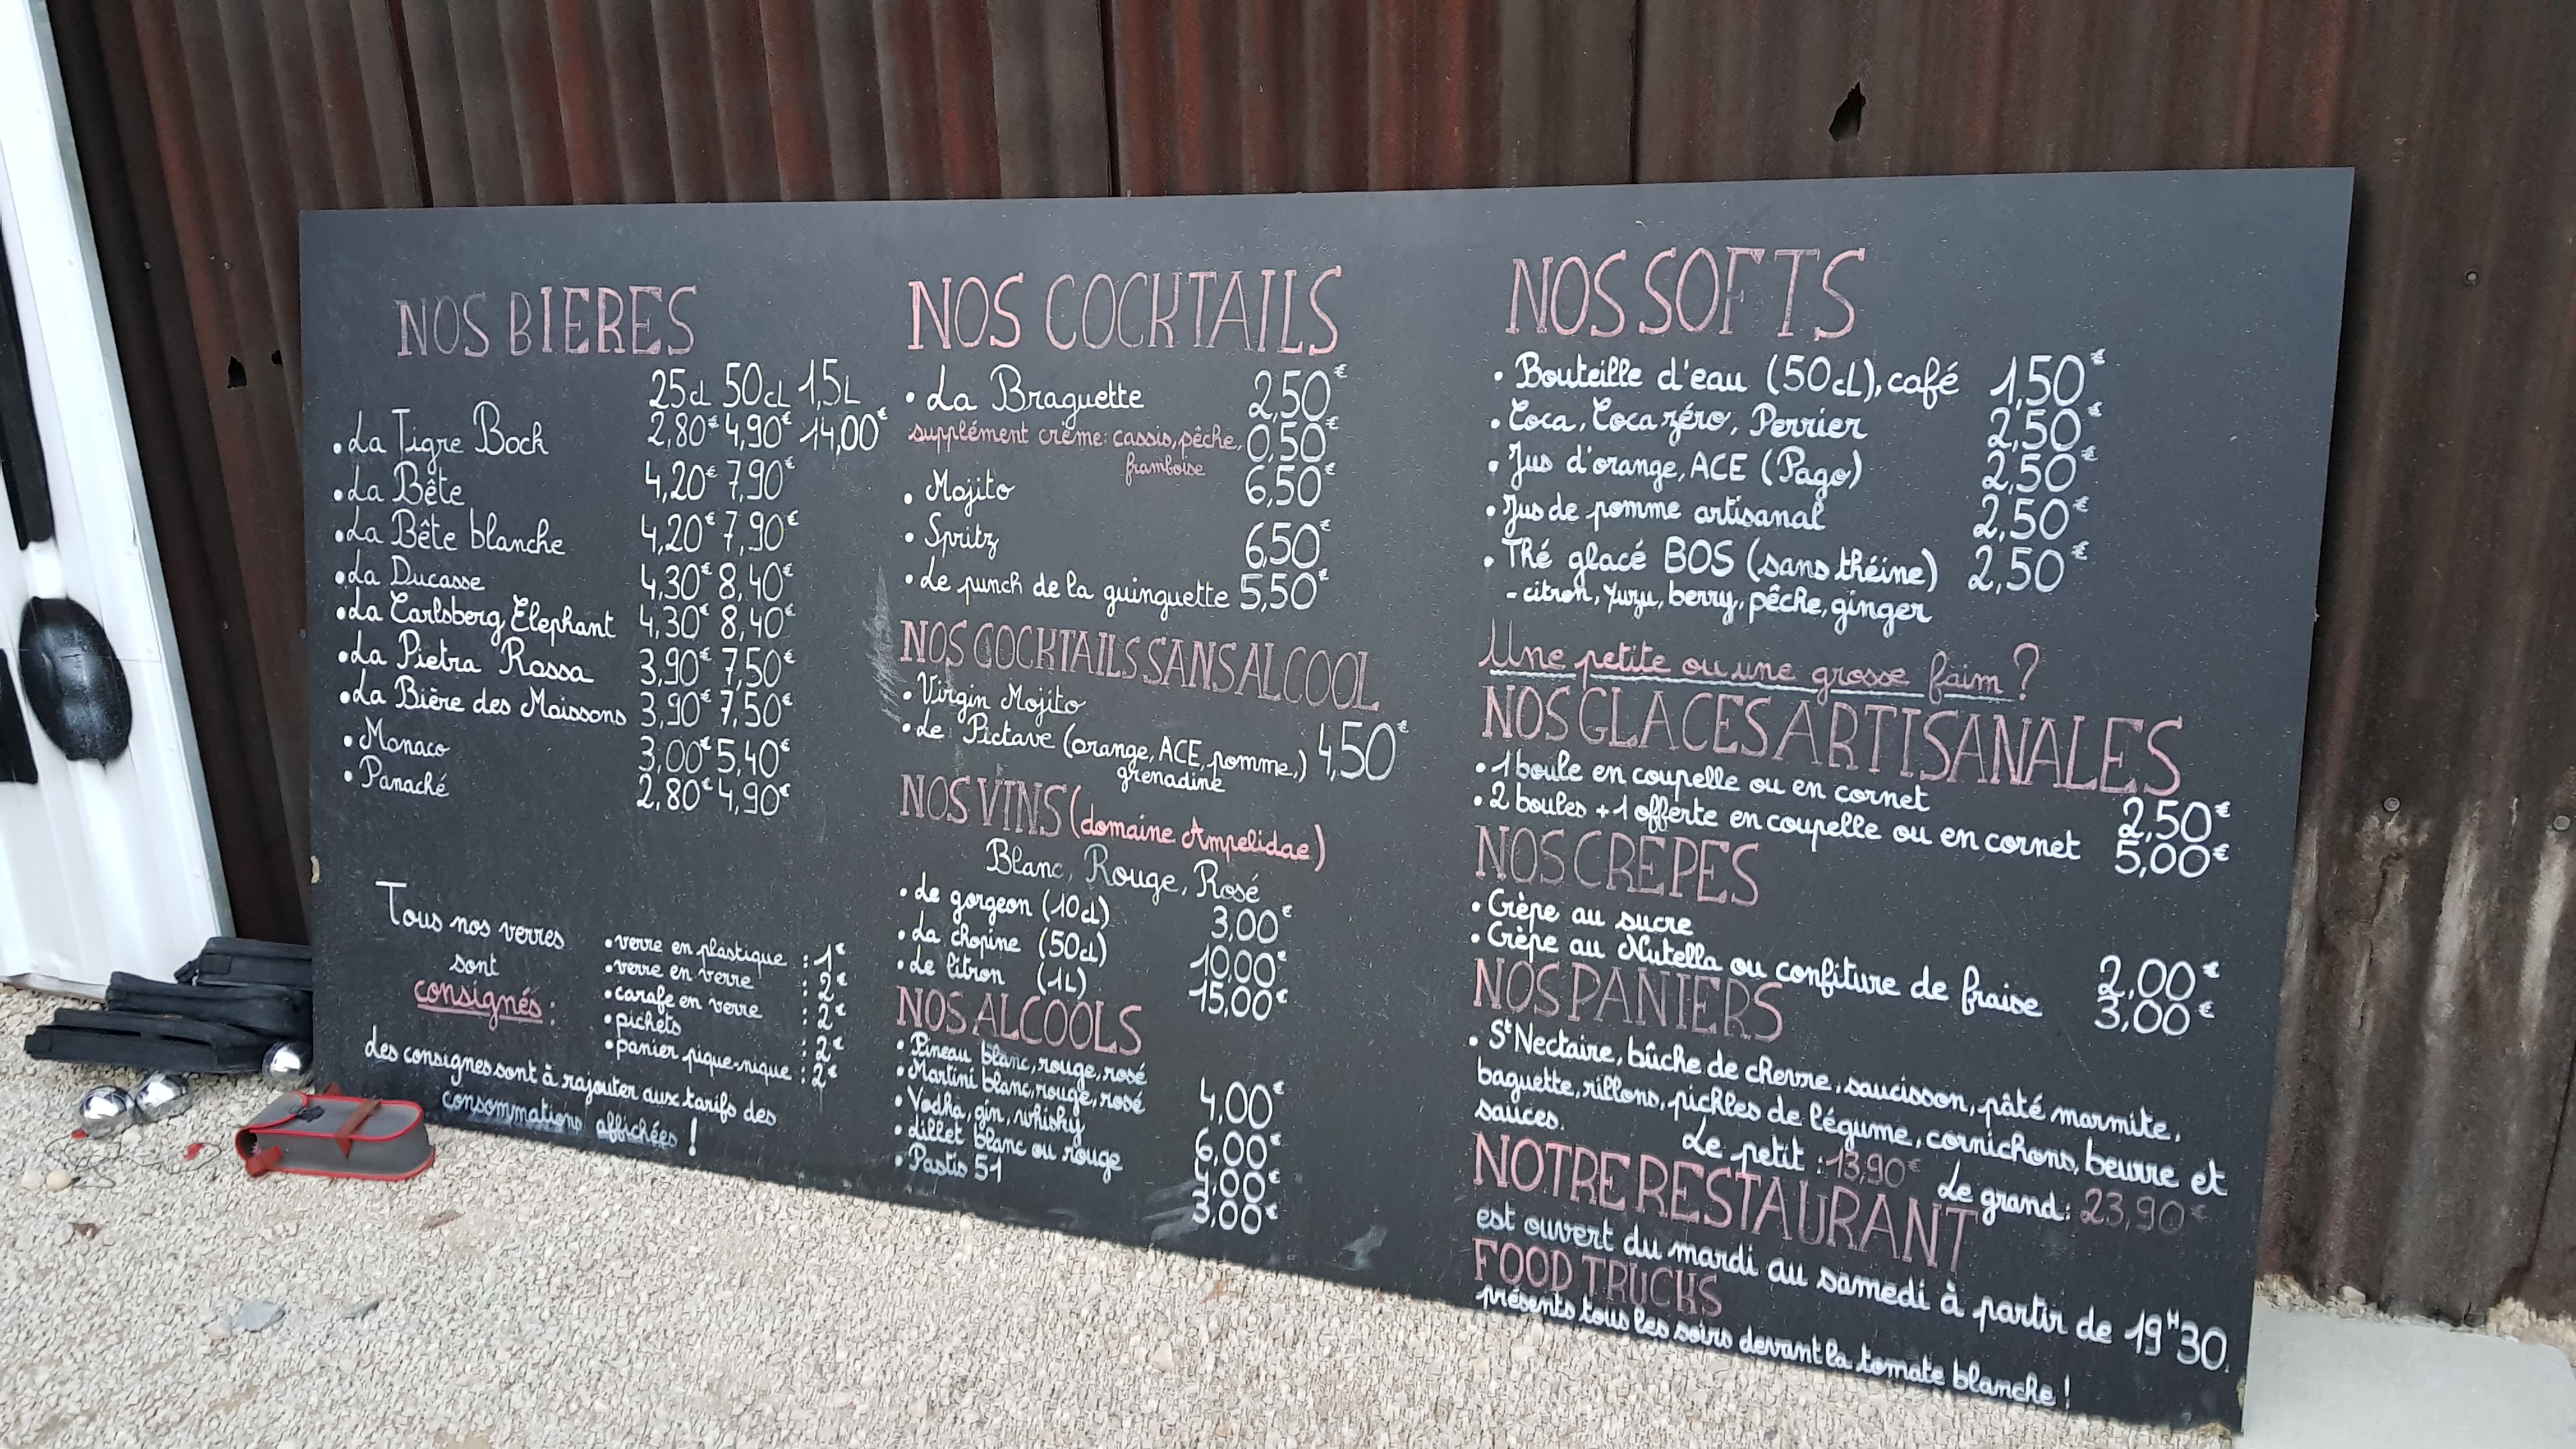 NOS BIERES
25cl 50cL 1,5L
• La Tigre Bock 2,80€ 4,90€ 14,00€
• La Bête 4,20€ 7,90€
• La Bête blanche 4,20€ 7,90€
• La Ducasse 4,30€ 8,40€
• La Carlsberg Elephant 4,30€ 8,40€
• La Pietra Rossa 3,90€ 7,50€
• La Bière des Moissons 3,90€ 7,50€
• Monaco 3,00€ 5,40€
• Panaché 2,80€ 4,90€
Tous nos verres
sont
consignés :
• verre en plastique : 1€
• verre en verre : 2€
• carafe en verre : 2€
• pichets : 2€
• panier pique-nique : 2€
des consignes sont à rajouter aux tarifs des
consommations affichées !
NOS COCKTAILS
• La Braguette 2,50€
supplément crème: cassis, pêche, 0,50€
framboise
• Mojito 6,50€
• Spritz 6,50€
• Le punch de la guinguette 5,50€
NOS COCKTAILS SANS ALCOOL
• Virgin Mojito
• Le Pictave (orange, ACE, pomme,) 4,50€
grenadine
NOS VINS (domaine Ampelidae)
Blanc, Rouge, Rosé
• Le gorgeon (10cl) 3,00€
• La chopine (50cl) 10,00€
• Le litron (1L) 15,00€
NOS ALCOOLS
• Pineau blanc, rouge, rosé
• Martini blanc, rouge, rosé 4,00€
• Vodka, gin, whisky 6,00€
• Lillet blanc ou rouge 4,00€
• Pastis 51 3,00€
NOS SOFTS
• Bouteille d'eau (50cL), café 1,50€
• Coca, Coca zéro, Perrier 2,50€
• Jus d'orange, ACE (Pago) 2,50€
• Jus de pomme artisanal 2,50€
• Thé glacé BOS (sans théine) 2,50€
- citron, yuzu, berry, pêche, ginger
Une petite ou une grosse faim ?
NOS GLACES ARTISANALES
• 1 boule en coupelle ou en cornet 2,50€
• 2 boules + 1 offerte en coupelle ou en cornet 5,00€
NOS CREPES
• Crèpe au sucre 2,00€
• Crèpe au Nutella ou confiture de fraise 3,00€
NOS PANIERS
• St Nectaire, bûche de chevre, saucisson, pâté marmite,
baguette, rillons, pickles de légume, cornichons, beurre et
sauces.
Le petit : 13,90€ Le grand : 23,90€
NOTRE RESTAURANT
est ouvert du mardi au samedi à partir de 19H30.
FOOD TRUCKS
présents tous les soirs devant la tomate blanche !